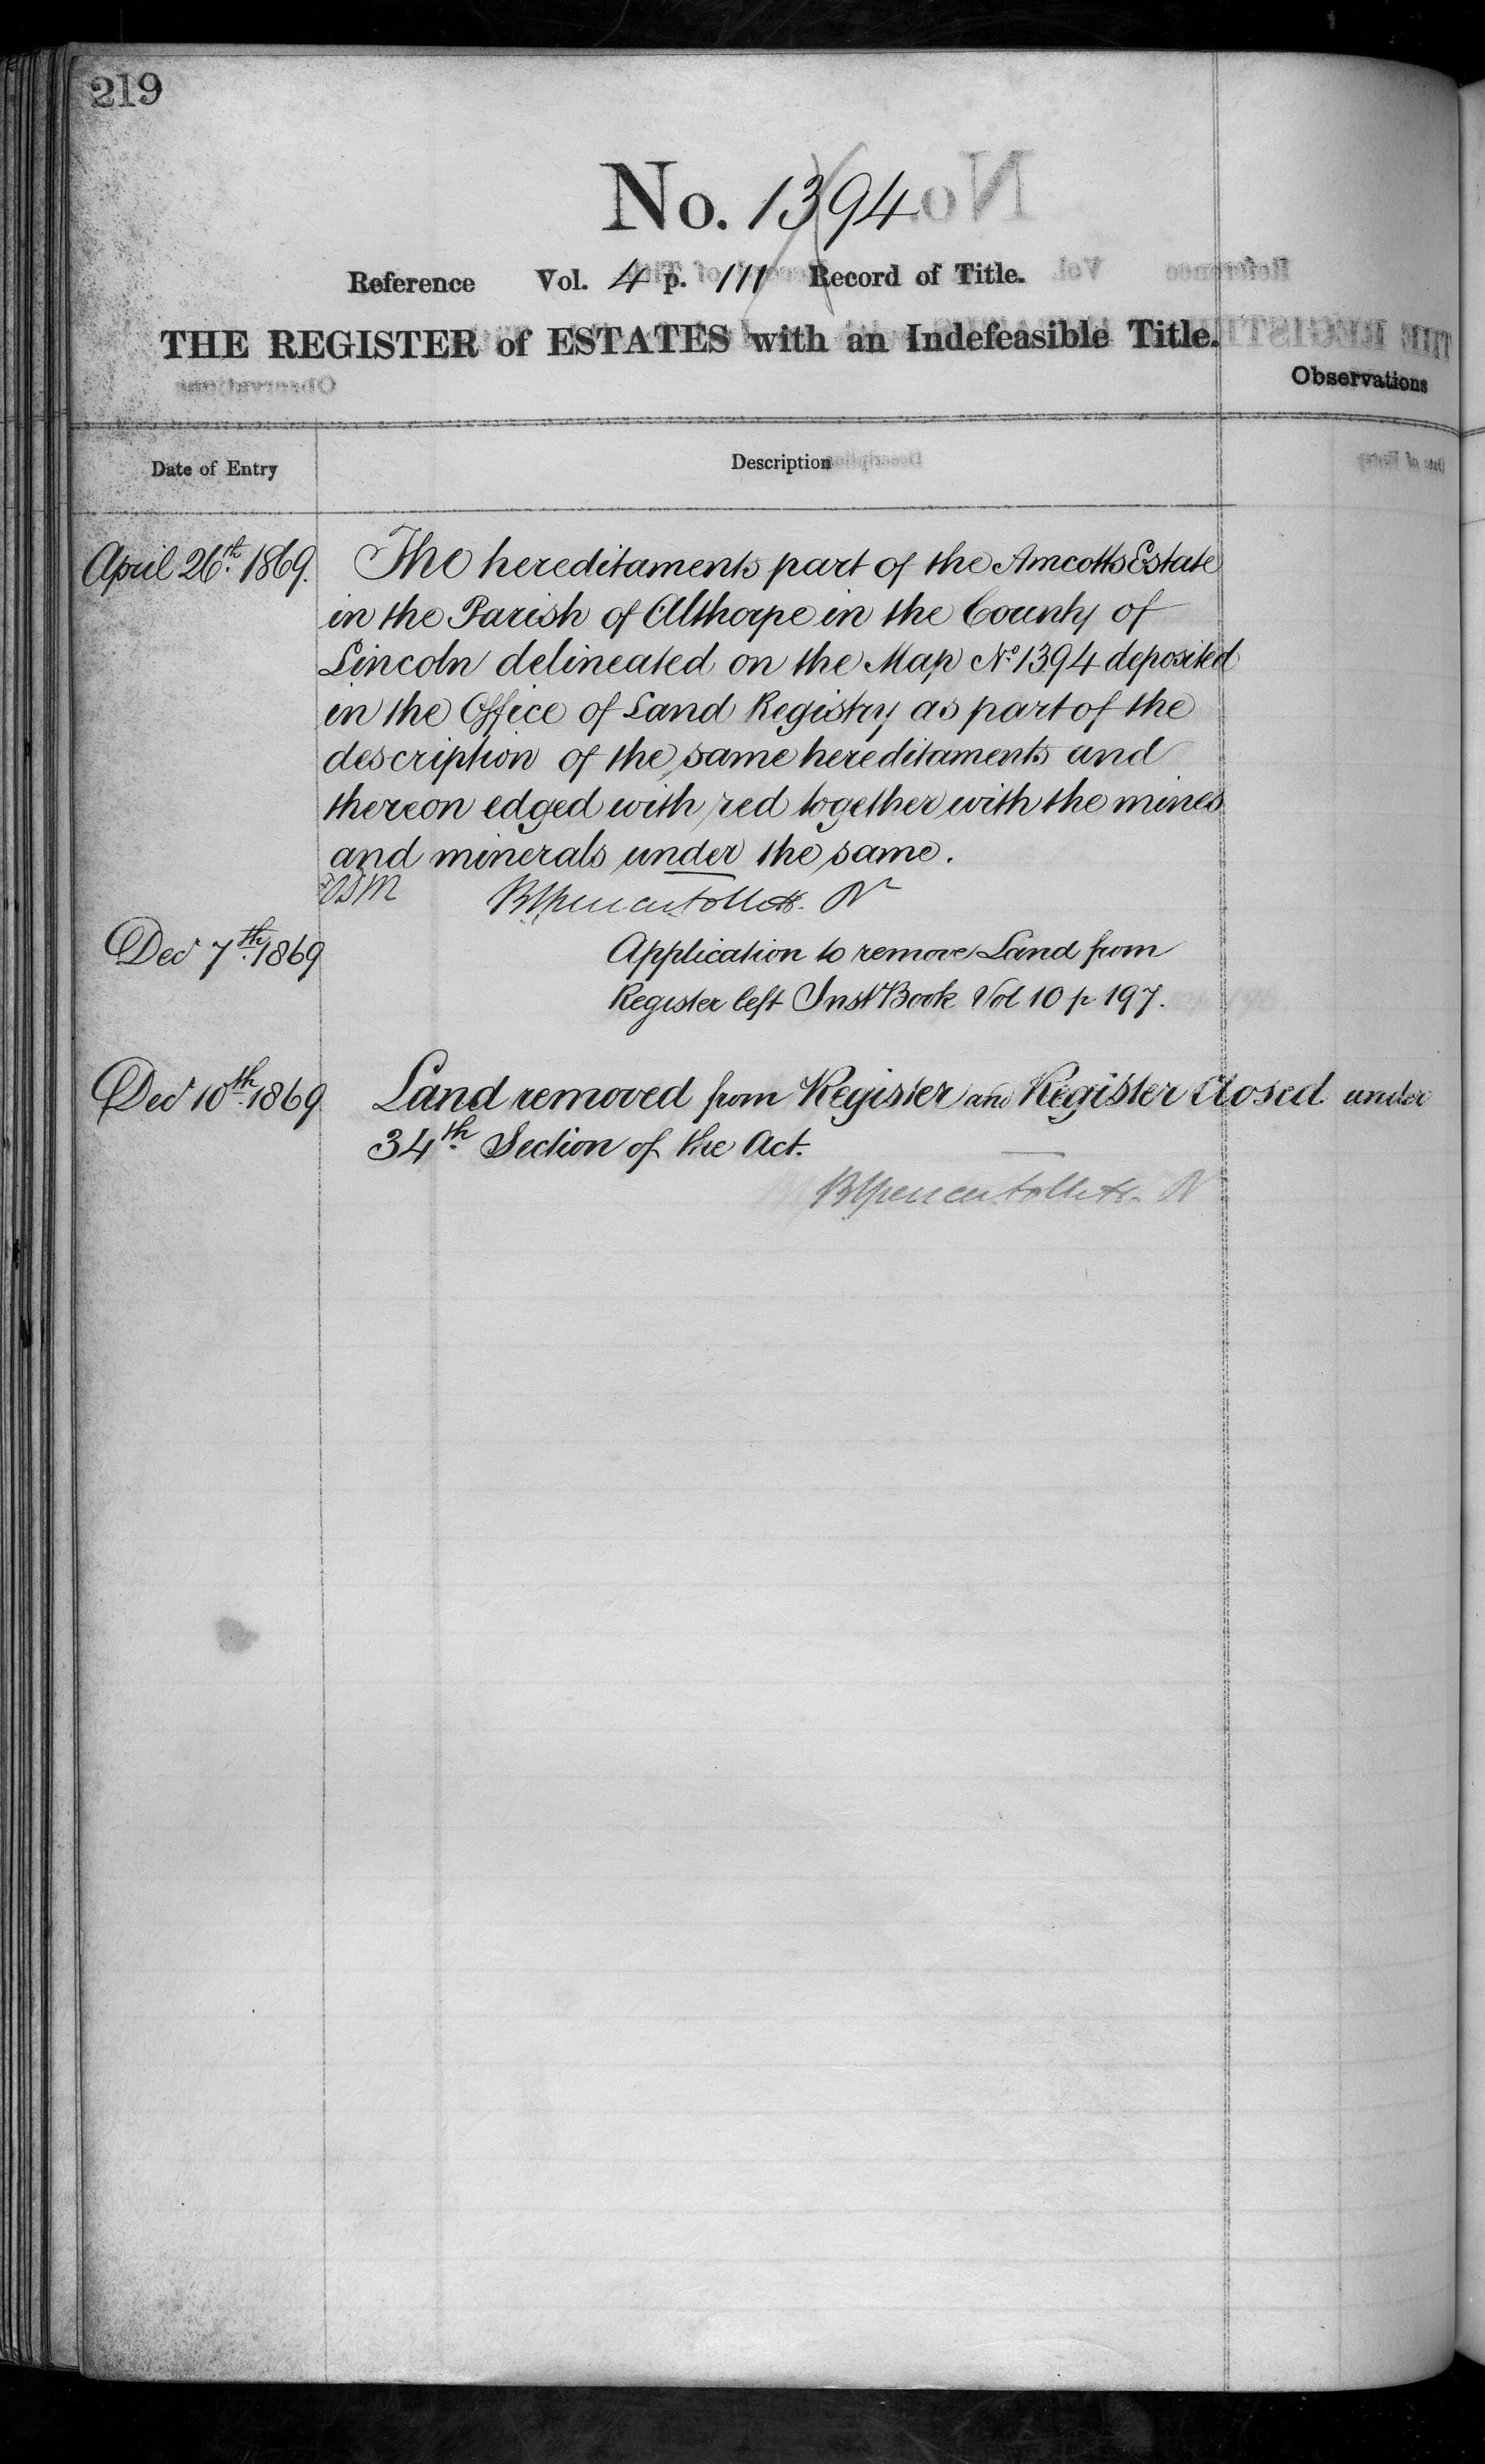 219
No. 1394
Reference Vol. 4 p. 111 Record of Title.
THE REGISTER of ESTATES with an Indefeasible Title.
Observations
Date of Entry Description
April 26th. 1869. The hereditaments part of the Amcotts Estate
in the Parish of Althorpe in the County of
Lincoln delineated on the Map No. 1394 deposited
in the Office of Land Registry as part of the
description of the same hereditaments and
thereon edged with red together with the mines
and minerals under the same.
Dec 7th. 1869 Application to remove Land from
Register left Inst Book Vol 10 p 197.
Dec 10th. 1869 Land removed from Register and Register Closed under
34th. Section of the Act.